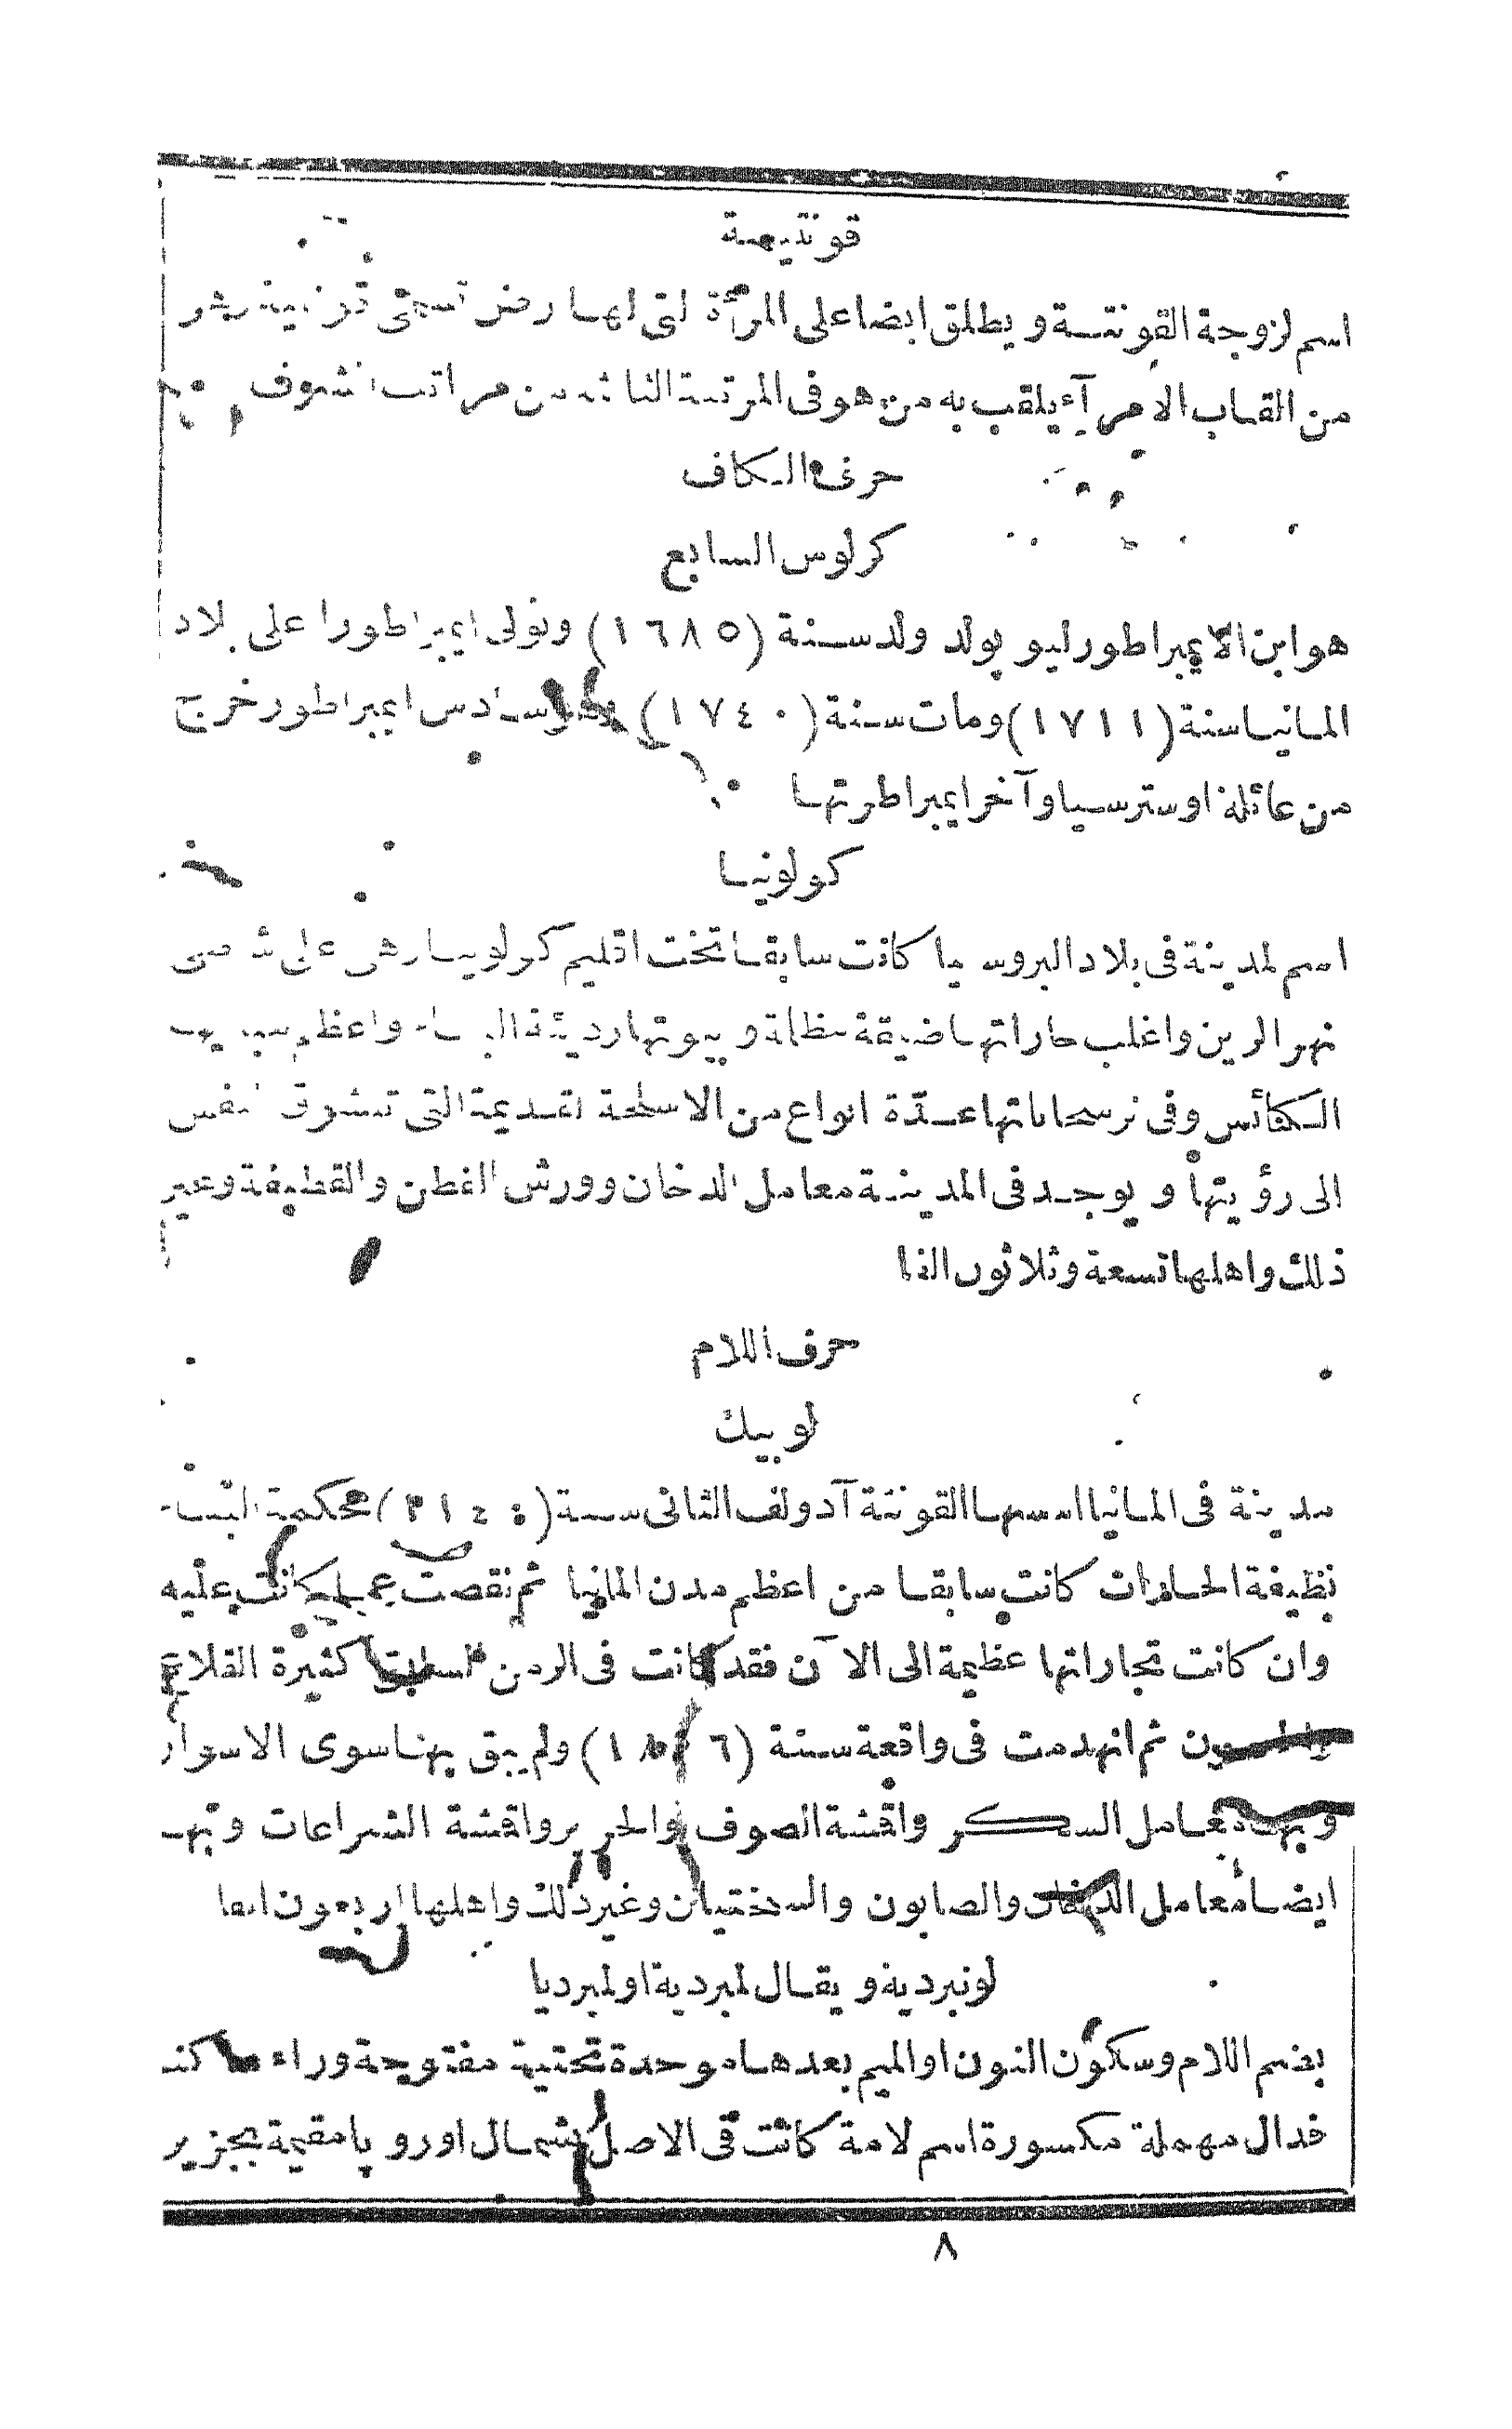 قونتيسة
اسم لزوجة القونتة ويطلق ايضا على المرأة التى لها ارض تسمى قونتية وهو
من القاب الامرآء يلقب به من هو فى المرتبة الثالثة من مراتب الشرف
حرف الكاف
كرلوس السابع
هو ابن الايمبراطور ليوپولد ولد سنة (١٦٨٥) وتولى ايمبراطورا على بلاد
المانيا سنة (١٧١١) ومات سنة (١٧٤٠) سادس ايمبراطور خرج
من عائلة اوسترسيا وآخر ايمبراطرتها
كولونيا
اسم لمدينة فى بلاد البروسيا كانت سابقا تخت اقليم كولونيا وهى على شاطئ
نهر الرين واغلب حاراتها ضيقة مظلمة وبيوتها رديئة البناء واعظم
الكنائس وفى ترسخاناتها عدّة انواع من الاسلحة القديمة التى تتشوق النفس
الى رؤيتها ويوجد فى المدينة معامل الدخان وورش القطن والقطيفة وغير
ذلك واهلها تسعة وثلاثون الفا
حرف اللام
لوبيك
مدينة فى المانيا اسسها القونتة آدولف الثانى سنة محكمة البناء
نظيفة الحارات كانت سابقا من اعظم مدن المانيا ثم نقصت عما كانت عليه
وان كانت تجاراتها عظيمة الى الآن فقد كانت فى الزمن السابق كثيرة القلاع
والحصون ثم انهدمت فى واقعة سنة ولم يبق بها سوى الاسوار
وبها معامل السكر واقشة الصوف والحرير واقشة الشراعات وبها
ايضا معامل الدخان والصابون والسختيان وغير ذلك واهلها اربعون الفا
لونبردية ويقال لمبردية اولمبرديا
بضم اللام وسكون النون او الميم بعدها موحدة تحتية مفتوحة وراء ساكنة
فدال مهملة مكسورة اسم لامة كانت فى الاصل بشمال اوروپا مقيمة بجزير
٨